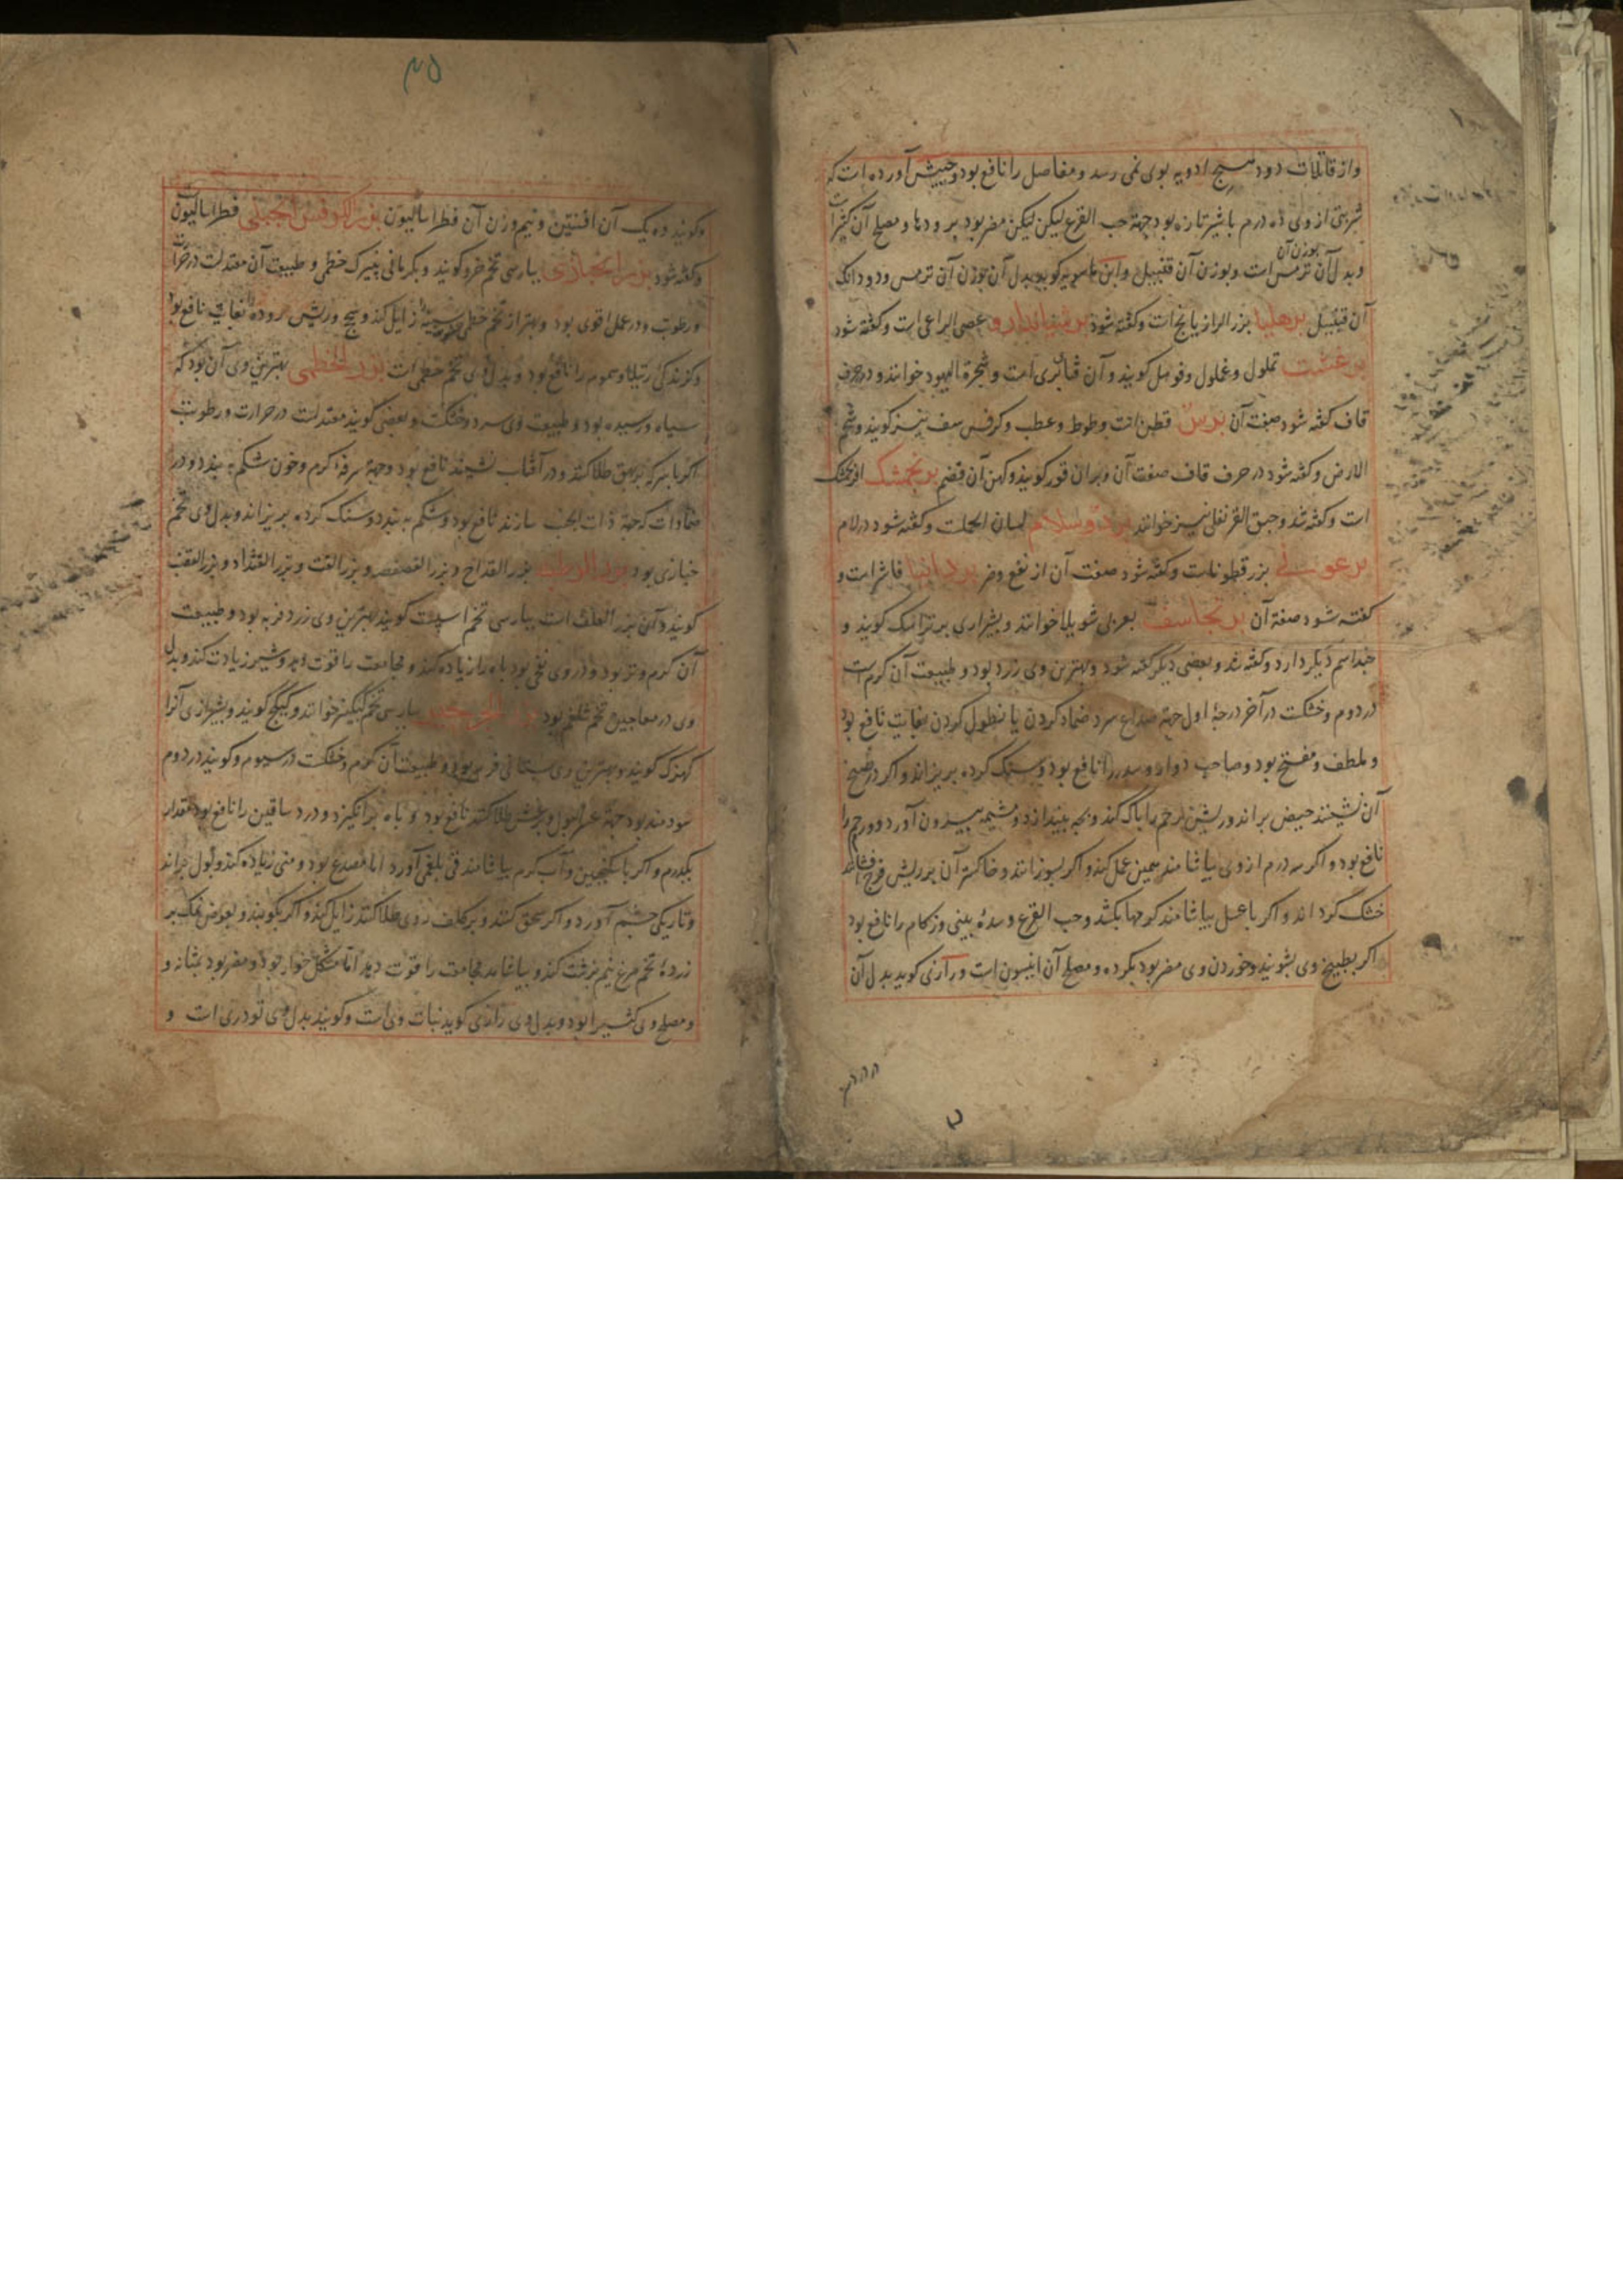 واز قاتلات دود هیچ ادویه بوی نمی رسد و مفاصل را نافع بود و حبیش آورده است که
شربتی از وی ده درم با شیر تازه بود جهة حب القرع لیکن مضر بود برودها و مصلح آن کثیرا است
بوزن آن
وبدل آن ترمس است وبوزن آن قنبیل وابن ماسویه کوید بدل آن بوزن آن ترمس ودو دانک
آن قنبیل برهلیا بزر الرازیانج است وکفته شود برشیاندارو عصی الراعی است وکفته شود
برغشت تملول وغملول وقوهل کویند وآن قنابری است وشجرة الیهود خوانند ودر حرف
قاف کفته شود صفت آن برس قطن است وطوط وعطب وکرفس سف نیز کویند وشحم
الارض وکفته شود در حرف قاف صفت آن وبرآن قور کویند وکهن آن قضم برنجمشک افرنجمشک
است وکفته شد وحبق القرنفلی نیز خوانند برد وسلام لسان الحمل است وکفته شود در لام
برغوثی بزر قطوناست وکفته شود صفت آن از نفع وضر فاشرا است و
کفته شود صفة آن برنجاسف بعربی شویلا خوانند وبشیرازی برتراسک کویند و
چند اسم دیکر دارد وکفته شد وبعضی دیکر کفته شود وبهترین وی زرد بود وطبیعت آن کرم است
در دوم وخشکست در آخر درجهٔ اول جهة صداع سرد ضماد کردن یا نطول کردن بغایت نافع بود
وملطف ومفتح بود وصاحب دوار وسدر را نافع بود وسنک کرده بریزاند واکر در طبیخ
آن نشینند حیض براند وریش رحم را پاک کند وبچه بیندازد ومشیمه بیرون آورد وورم رحم را
نافع بود واکر سه درم از وی بیاشامند همین عمل کند واکر بسوزانند وخاکستر آن بر ریش فرج فشانند
خشک کرداند واکر با عسل بیاشامند کرمها بکشد وحب القرع وسدهٔ بینی وزکام را نافع بود
اکر بطبیخ وی بشویند وخوردن وی مضر بود بکرده ومصلح آن انیسون است ورازی کوید بدل آن
۴۵
وکویند ده یک آن افسنتین ونیم وزن آن فطراسالیون بزر الکرفس الجبلی فطراسالیون است
وکفته شود بزر الخبازی بپارسی تخم خرو کویند وبکرمانی پنیرک خطمی وطبیعت آن معتدلست در حرارت
ورطوبت ودر عمل اقوی بود وبهتر از تخم خطمی زایل کند وسحج وریش روده بغایت نافع بود
وکزندکی رتیلا وسموم را نافع بود وبدل وی تخم خطمی است بزر الخطمی بهترین وی آن بود که
سیاه ورسیده بود وطبیعت وی سرد وخشکست وبعضی کویند معتدلست در حرارت ورطوبت
اکر با سرکه بر بهق طلا کنند ودر آفتاب نشینند نافع بود وجهة سرفهٔ کرم وخون شکم به بندد ودر
ضمادات که جهة ذات الجنب سازند نافع بود وشکم به بندد وسنک کرده بریزاند وبدل وی تخم
خبازی بود بزر الرطبه بزر القداح وبزر الفصفصه وبزر القت وبزر القثداد وبزر القضب
کویند وآن بزر العلف است بپارسی تخم اسپست کویند بهترین وی زرد فربه بود وطبیعت
آن کرم وتر بود ودر وی نفخی بود باه را زیاده کند ومجامعت را قوت دهد وشیر زیادت کند وبدل
وی در معاجین تخم شلغم بود بزر الجرجیر بپارسی تخم کیکیز خوانند وکیکج کویند وبشیرازی آنرا
کهزک کویند وبهترین وی بستانی فربه بود وطبیعت آن کرم وخشکست در سیوم وکویند در دوم
سودمند بود جهة عسر البول وبر نمش طلا کنند نافع بود وباه برانکیزد ودرد ساقین را نافع بود مقدار
یکدرم واکر با سکنجبین وآب کرم بیاشامند قی بلغمی آورد اما مصدع بود ومنی زیاده کند وبول براند
وتاریکی چشم آورد واکر سحق کنند وبر کلف روی طلا کنند زایل کند واکر بکوبند وبعوض نمک بر
زردهٔ تخم مرغ نیم برشت کنند وبیاشامند مجامعت را قوت دهد اما مشکل خوار بود ومضر بود بمثانه و
ومصلح وی کثیرا بود وبدل وی رازی کوید نبات وی است وکویند بدل وی تودری است و